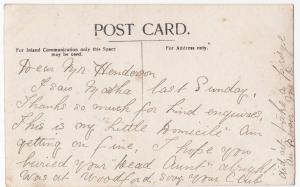 POST CARD.
For Inland Communication only this Space may be Used.
For Address only.
Dear Mr Henderson
I saw last Sunday,
Thanks so much for kind enquires,
This is my "Little Domicile" Am
getting on fine, I hope you
buried your dead Aunt
Was at Woodford, saw your Club